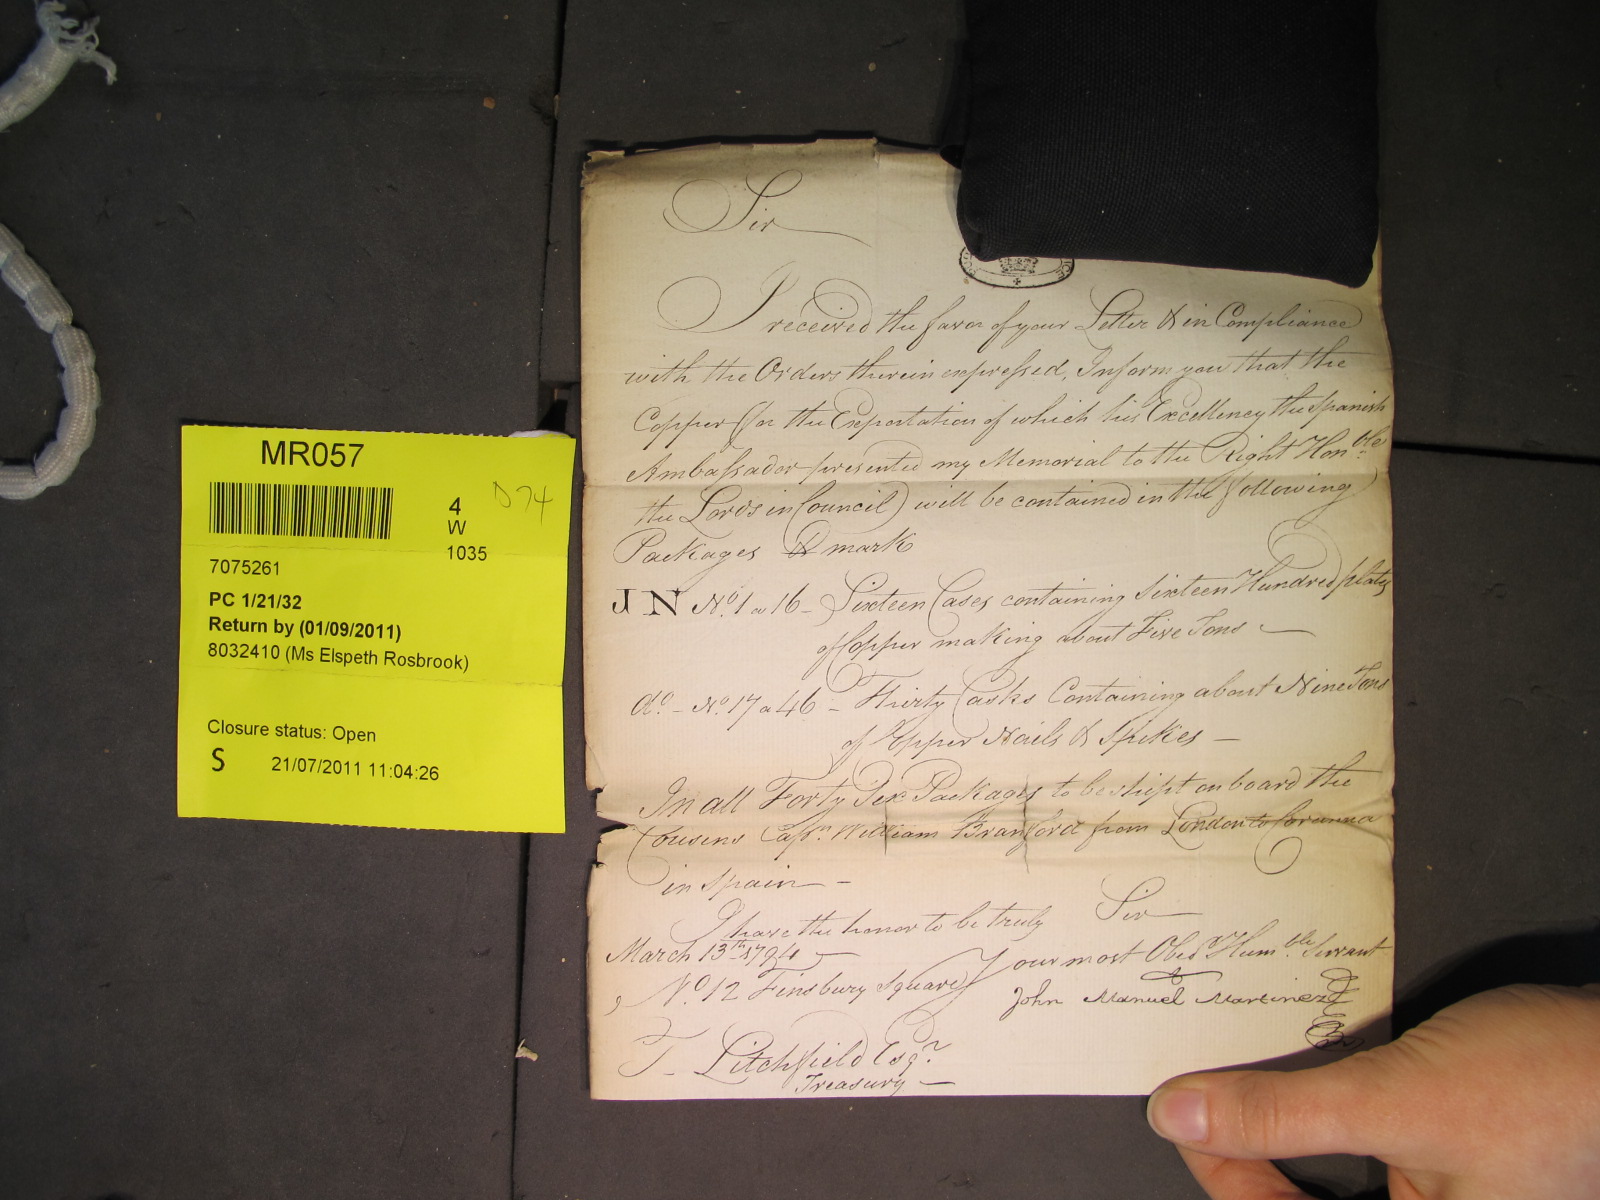 MR057
4
D 74
W
1035
7075261
PC 1/21/32
Return by (01/09/2011)
8032410 (Ms Elspeth Rosbrook)
Closure status: Open
S 21/07/2011 11:04:26
Sir
I received the favor of your Letter & in Compliance
with the Orders therein expressed, Inform you that the
Copper (for the Exportation of which his Excellency the Spanish
Ambassador presented my Memorial to the Right Hon.ble
the Lords in Council) will be contained in the following
Packages & mark
JN No. 1 a 16 - Sixteen Cases containing Sixteen Hundred plates
of Copper making about Five Tons -
do - No. 17 a 46 - Thirty Casks Containing about Nine Tons
of Copper Nails & Spikes -
In all Forty Six Packages to be shipt on board the
Cousens Capn. William Branford from London to Corunna
in Spain -
I have the honor to be truly Sir
March 13th 1794 Your most Obed Hum.ble Servant
No 12 Finsbury Square John Manuel Martinez
T. Litchfield Esqr.
Treasury -